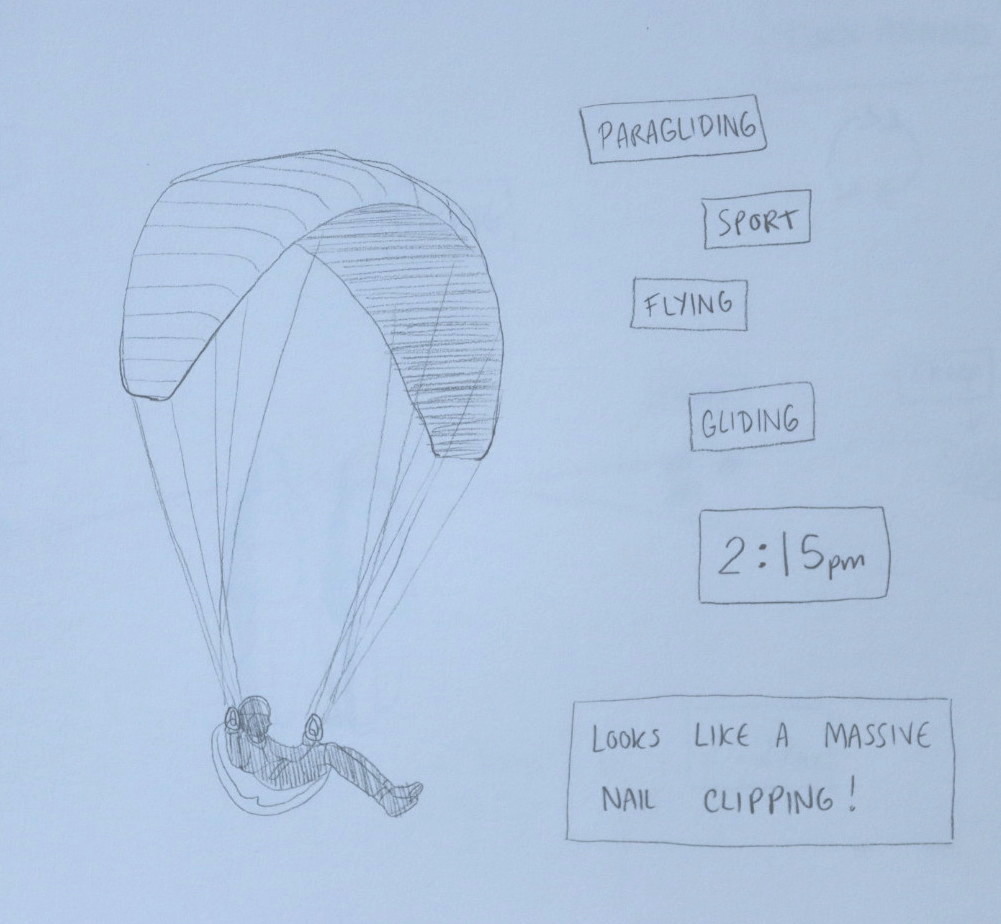 PARAGLIDING
SPORT
FLYING
GLIDING
2:15pm
LOOKS LIKE A MASSIVE
NAIL CLIPPING!